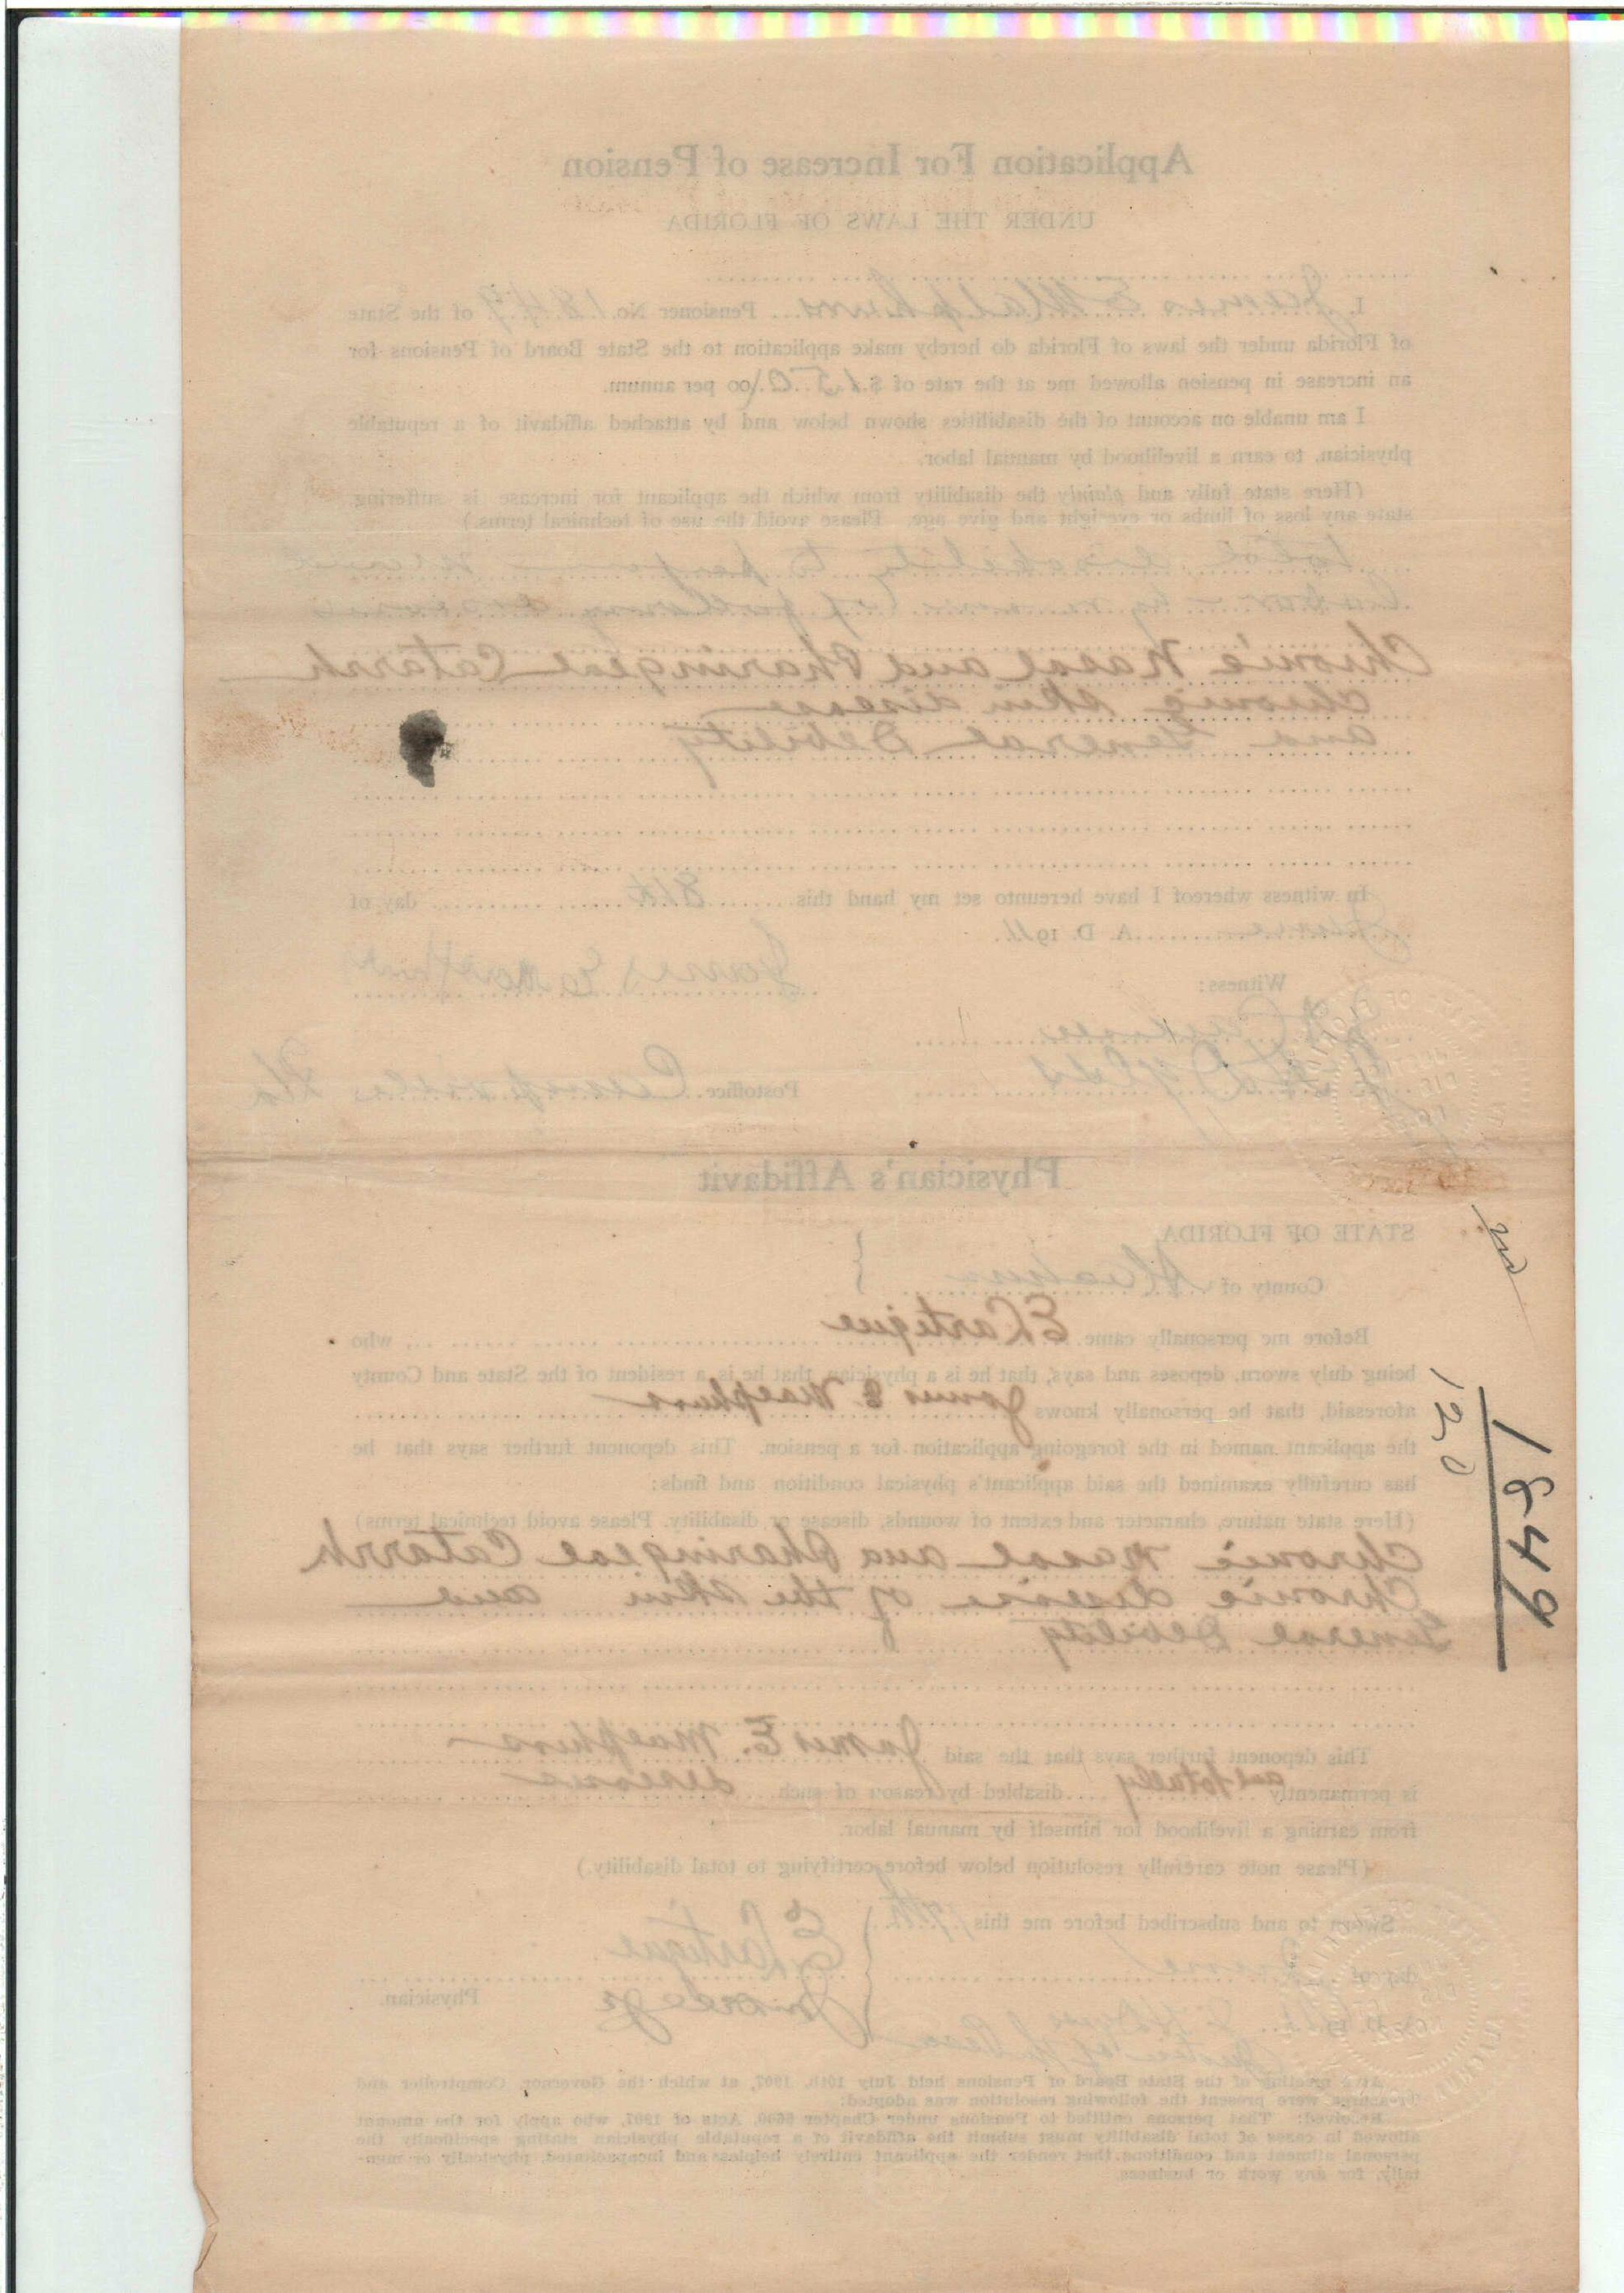 Application For Increase of Pension
UNDER THE LAWS OF FLORIDA
I, James E Malphurs Pensioner No. 1849 of the State
of Florida under the laws of Florida do hereby make application to the State Board of Pensions for
an increase in pension allowed me at the rate of $150/00 per annum.
I am unable on account of the disabilities shown below and by attached affidavit of a reputable
physician, to earn a livelihood by manual labor.
(Here state fully and plainly the disability from which the applicant for increase is suffering,
state any loss of limbs or eyesight and give age. Please avoid the use of technical terms.)
total disability to perform manual
labor by reason of following
Chronic Nasal and Pharingeal Catarrh
Chronic Skin disease
and General Debility
In witness whereof I have hereunto set my hand this 8th day of
June A. D. 1911.
James E Malphurs
Witness:
Postoffice Campville Fla
Physician's Affidavit
STATE OF FLORIDA,
County of Alachua
Before me personally came E Lartigue who
being duly sworn, deposes and says, that he is a physician, that he is a resident of the State and County
aforesaid, that he personally knows James E Malphurs
the applicant named in the foregoing application for a pension. This deponent further says that he
has carefully examined the said applicant's physical condition and finds:
(Here state nature, character and extent of wounds, disease or disability. Please avoid technical terms)
Chronic Nasal and Pharingeal Catarrh
Chronic disease of the Skin and
General Debility
This deponent further says that the said James E. Malphurs
is permanently and totally disabled by reason of such diseases
from earning a livelihood for himself by manual labor.
(Please note carefully resolution below before certifying to total disability.)
Sworn to and subscribed before me this
day of June
E Lartigue
Physician.
At a meeting of the State Board of Pensions held July 10th, 1907, at which the Governor, Comptroller and
Treasurer were present the following resolution was adopted:
Resolved: That persons entitled to Pensions under Chapter 5600, Acts of 1907, who apply for the amount
allowed in cases of total disability must submit the affidavit of a reputable physician stating specifically the
personal ailment and conditions that render the applicant entirely helpless and incapacitated, physically or men-
tally, for any work or business.
1849
120